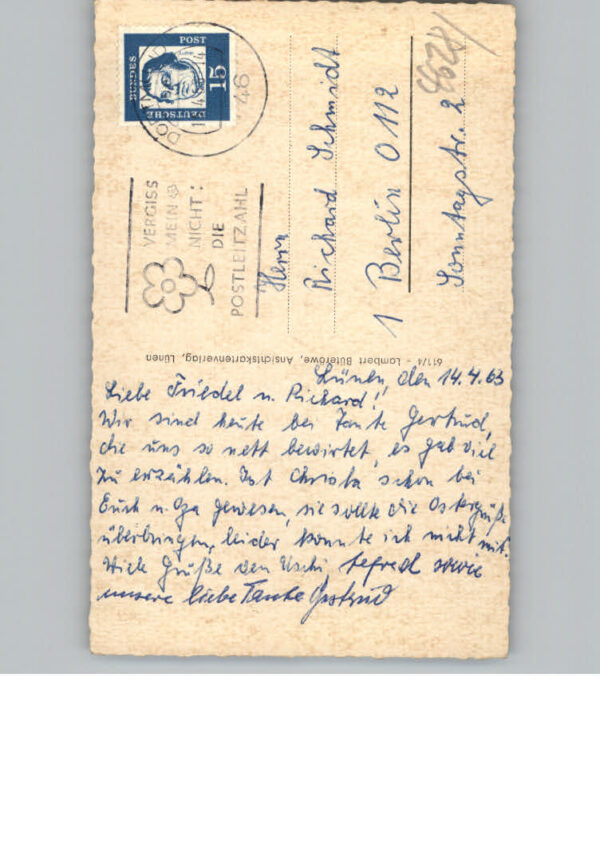 DEUTSCHE BUNDESPOST
15
DORTMUND
46
VERGISS
MEIN
NICHT:
DIE
POSTLEITZAHL
Herrn
Richard Schmidt
1 Berlin O 112
Sonntagstr. 2
611/4 - Lambert Büterowe, Ansichtskartenverlag, Lünen
Lünen, den 14.4.63
Liebe Friedel u. Richard!
Wir sind heute bei Tante Gertrud,
die uns so nett bewirtet, es gab viel
zu erzählen. Ist Christa schon bei
Euch u. Opa gewesen, sie sollte die Ostergrüße
überbringen, leider konnte ich nicht mit.
Viele Grüße von Uschi, sowie
unsere liebe Tante Gertrud